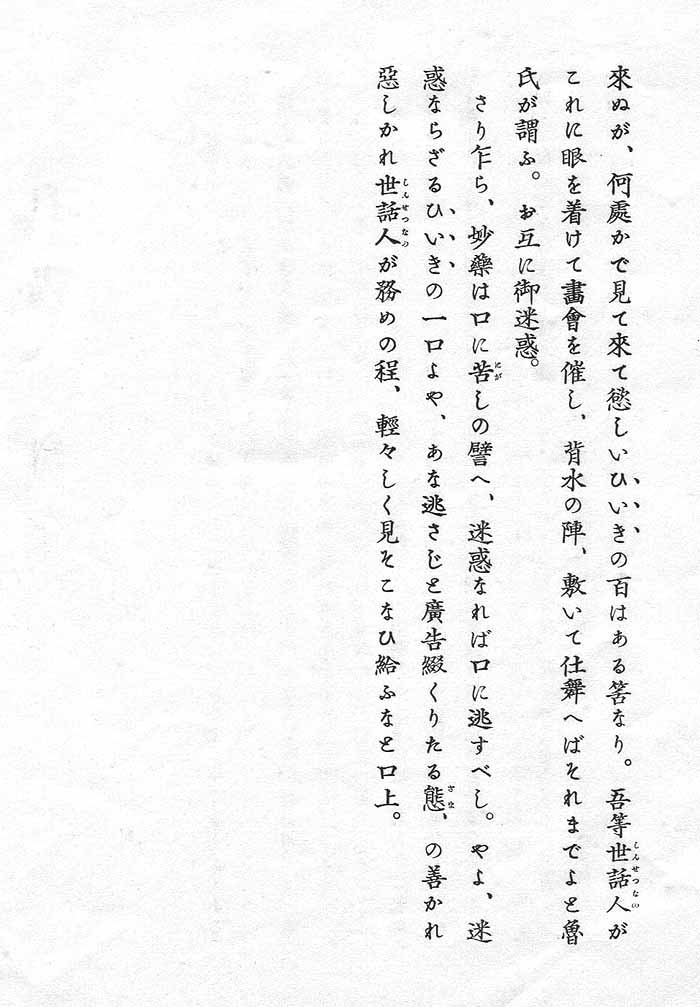 來ぬが、何處かで見て來て慾しいひいきの百はある筈なり。吾等世話人が
これに眼を着けて畵會を催し、背水の陣、敷いて仕舞へばそれまでよと魯
氏が謂ふ。お互に御迷惑。
さり乍ら、妙藥は口に苦しの譬へ、迷惑なれば口に逃すべし。やよ、迷
惑ならざるひいきの一口よや、あな逃さじと廣告綴くりたる態、の善かれ
惡しかれ世話人が務めの程、輕々しく見そこなひ給ふなと口上。